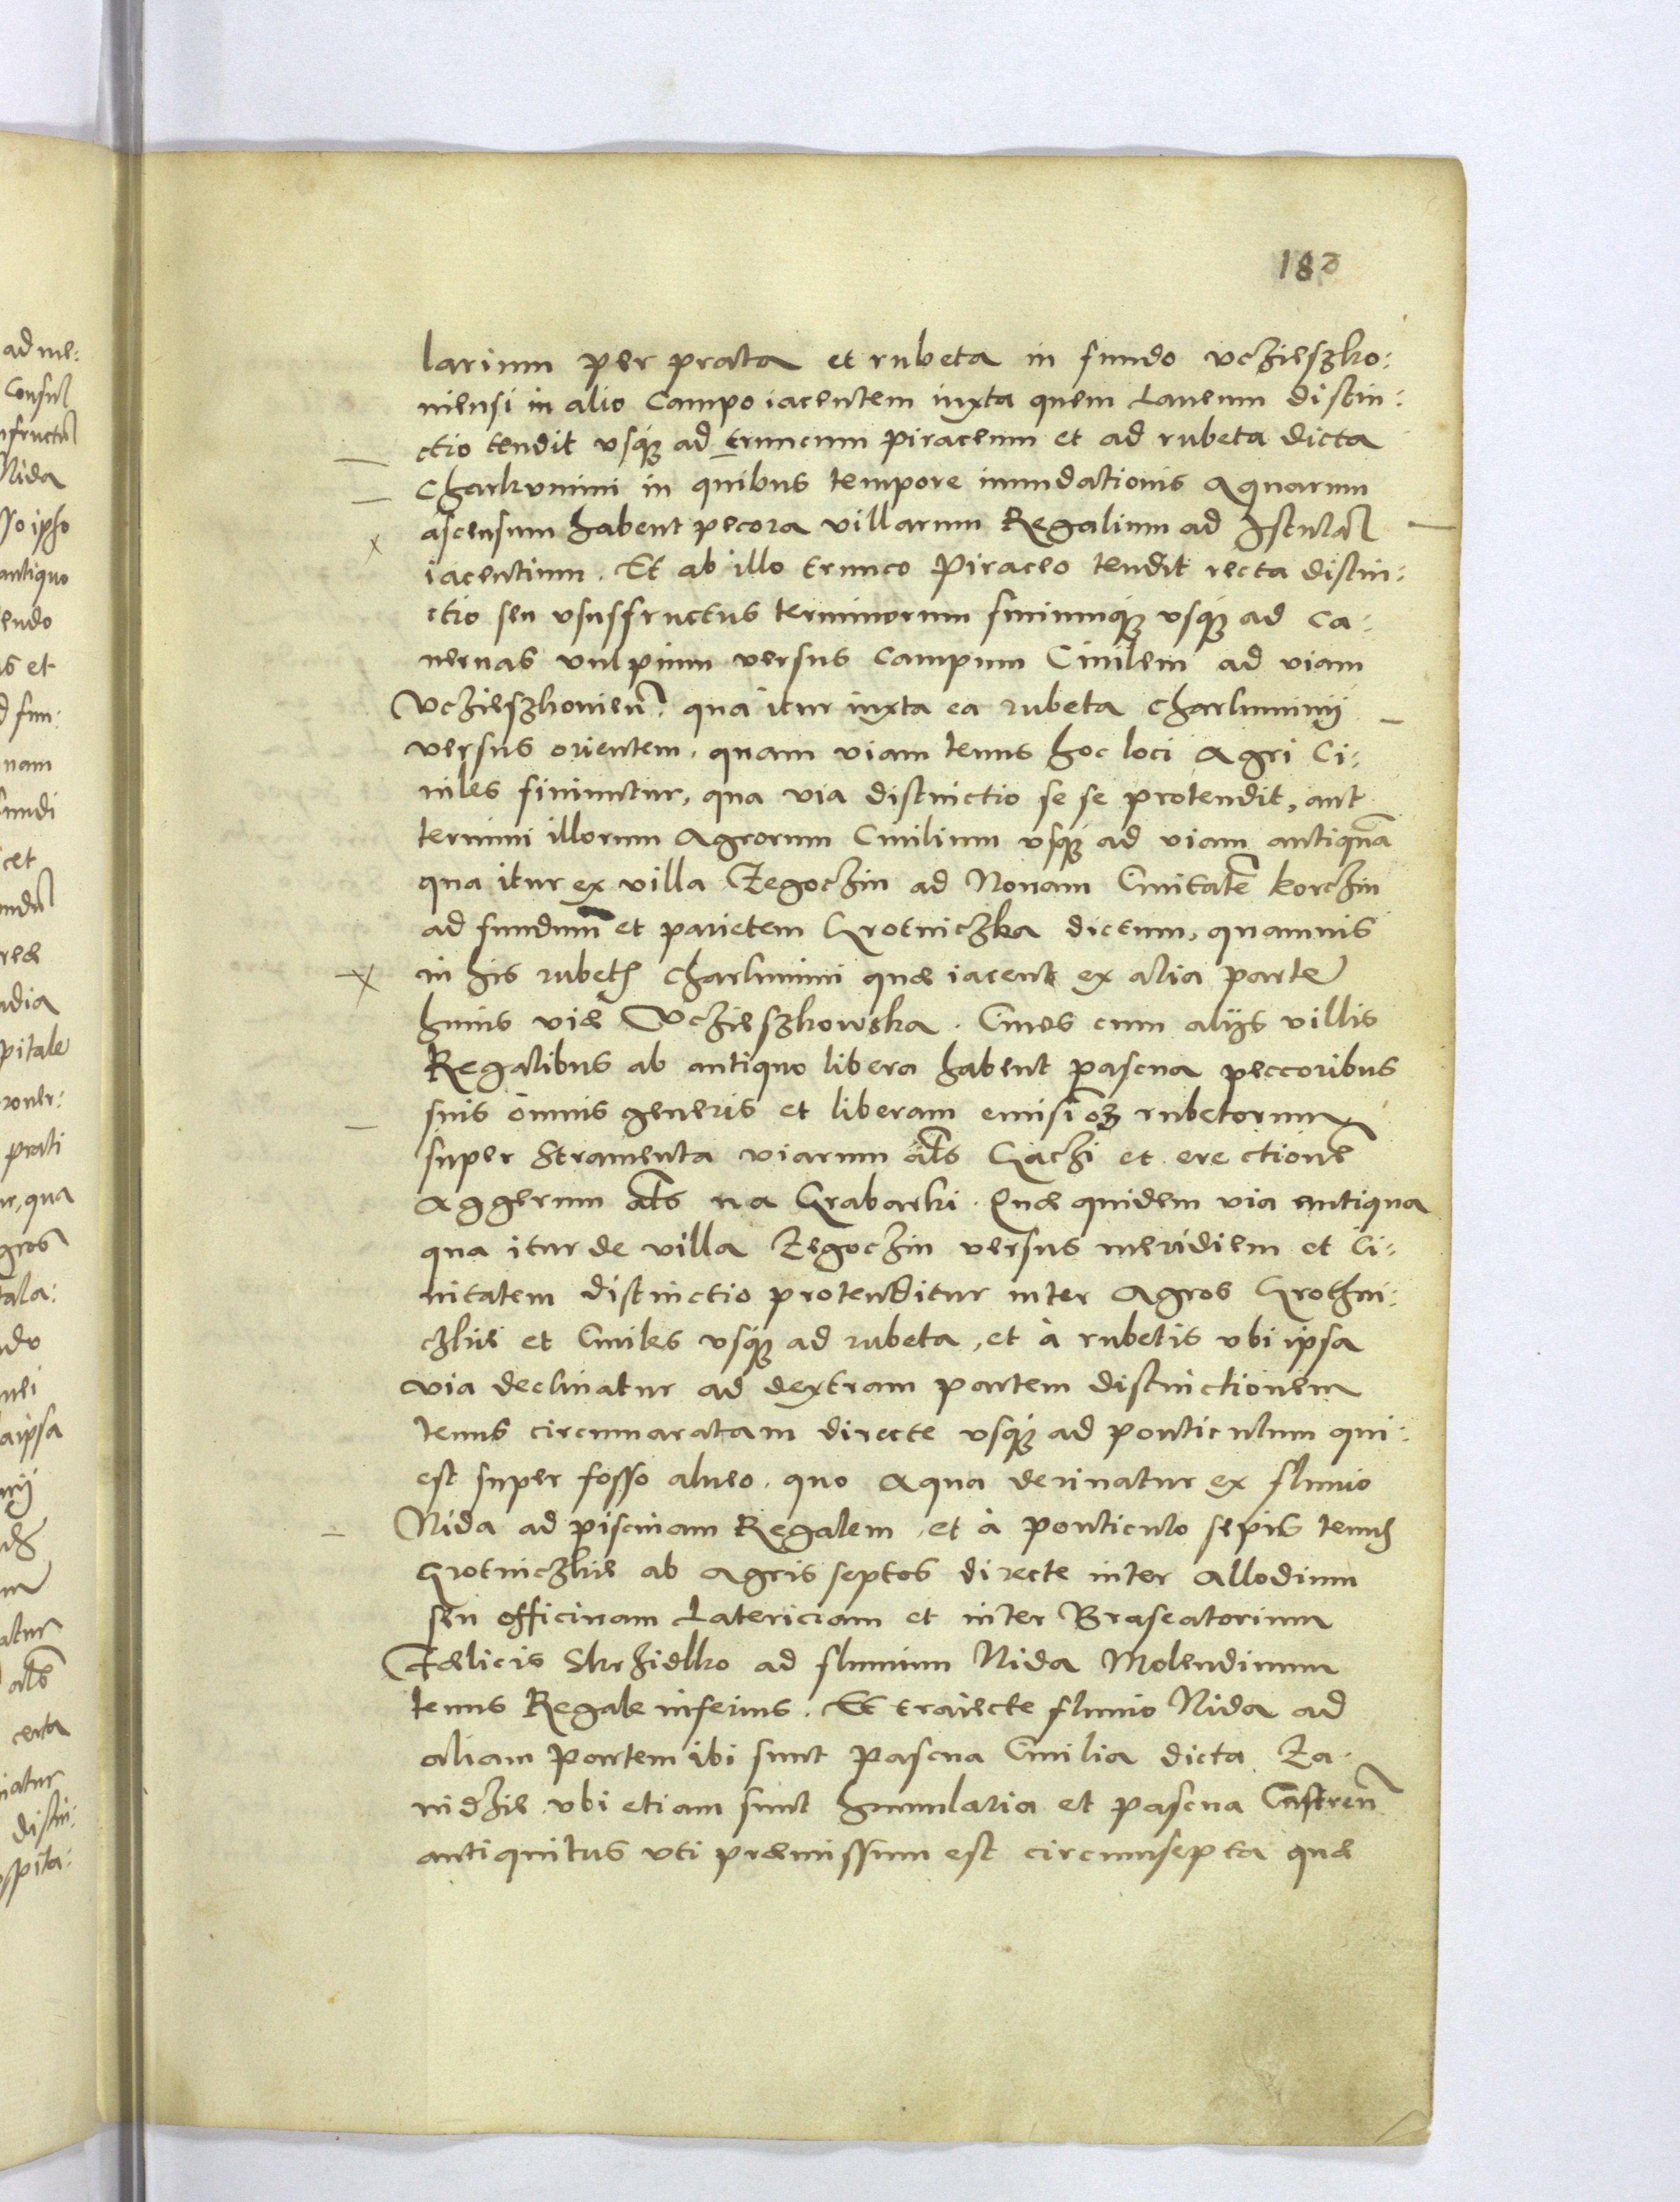 182
larium per prata et rubeta in fundo vczieszko:
niensi in alio Campo iacentem iuxta quem Laneum distin:
ctio tendit vsq₃ ad truncum piraceum et ad rubeta dicta
Charkunini in quibus tempore inundationis Aquarum
ascensum habent pecora villarum Regalium ad Istulã
iacentium. Et ab illo trunco Piraceo tendit recta distin:
ctio seu vsusfructus terminorum finiumq₃ vsq₃ ad Ca:
uernas vulpium versus Campum Ciuilem ad viam
Vczieszkovieñ. qua itur iuxta ea rubeta Charkuninij
versus orientem. quam viam tenus hoc loci Agri Ci:
uiles finiuntur, qua via distinctio se se protendit, aut
termini illorum Agrorum Ciuilium vsq₃ ad viam antiquã
qua itur ex villa Zegoczin ad Nouam Ciuitatẽ korczin
ad fundum et parietem Grotniczka dictum, quamuis
in his rubetis Charkunini quæ iacent ex alia parte
huius viæ Vczieszkowska. Ciues cum alijs villis
Regalibus ab antiquo libera habent pascua peccoribus
suis omnis generis et liberam emisiõ₃ rubetorum
super Stramenta viarum als Gaczi et erectionẽ
Aggerum als na Grabarki. Quæ quidem via antiqua
qua itur de villa Zegoczin versus meridiem et Ci:
uitatem distinctio protenditur inter Agros Grothni:
czkie et Ciuiles vsq₃ ad rubeta, et à rubetis vbi ipsa
via declinatur ad dextram partem distinctionem
tenus circumaratam directe vsq₃ ad ponticulum qui:
est super fosso alueo. quo Aqua deriuatur ex fluuio
Nida ad piscinam Regalem, et à ponticulo sepis tenus
Grotniczkie ab Agris septos directe inter Allodium
seu officinam Latericiam et inter Braseatorium
Fælicis Skrzidlko ad fluuium Nida Molendinum
tenus Regale inferius. Et traiecte fluuio Nida ad
aliam Partem ibi sunt Pascua Ciuilia dicta Za:
nidzie vbi etiam sunt humularia et pascua Castreñ
antiquitus vti præmissum est circumsepta quæ